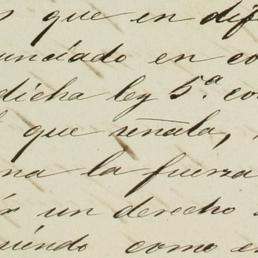 s que en dif
unciado en co
dicha ley 5.ª co
que señala,
na la fuerza
ir un derecho
uiendo como e